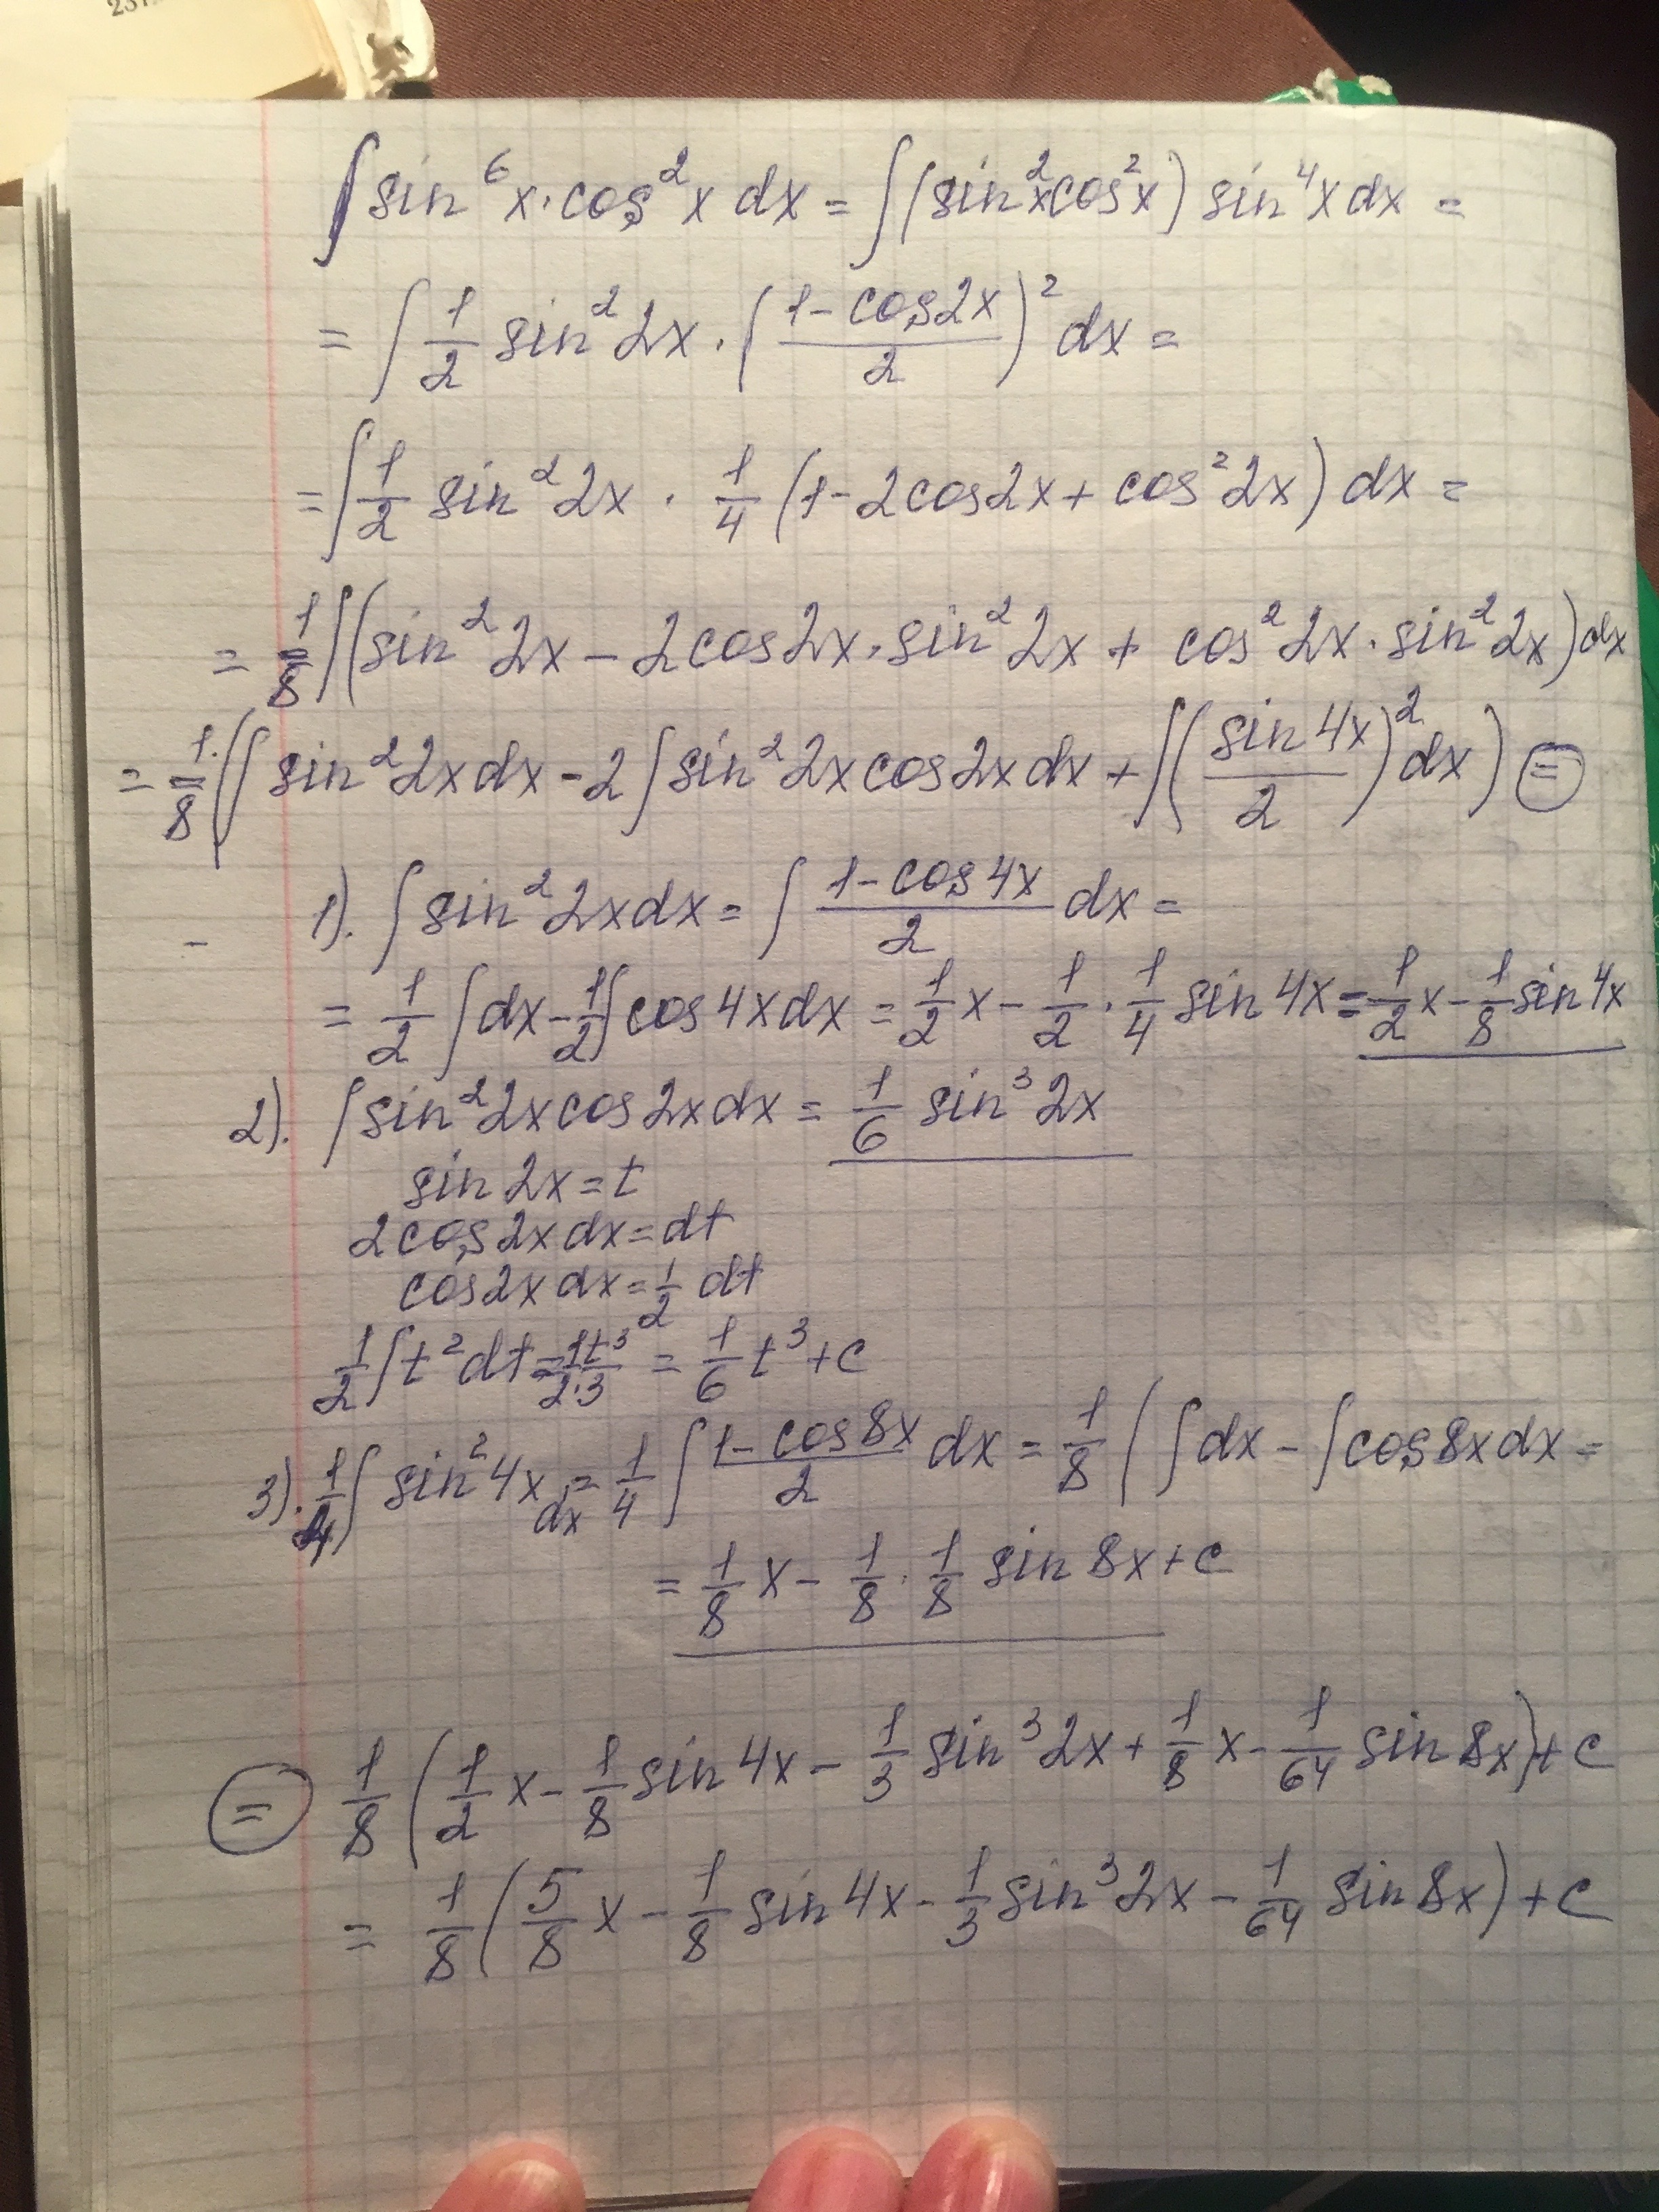 ∫ sin⁶x · cos²x dx = ∫(sin²x cos²x) sin⁴x dx =
= ∫ 1/2 sin²2x · ((1 - cos2x)/2)² dx =
= ∫ 1/2 sin²2x · 1/4 (1 - 2cos2x + cos²2x) dx =
= 1/8 ∫(sin²2x - 2cos2x · sin²2x + cos²2x · sin²2x) dx
= 1/8 · (∫ sin²2x dx - 2∫ sin²2x cos2x dx + ∫((sin4x)/2)² dx) =
1). ∫ sin²2x dx = ∫ (1 - cos4x)/2 dx =
= 1/2 ∫dx - 1/2 ∫ cos4x dx = 1/2 x - 1/2 · 1/4 sin4x = 1/2 x - 1/8 sin4x
2). ∫ sin²2x cos2x dx = 1/6 sin³2x
sin2x = t
2cos2x dx = dt
cos2x dx = 1/2 dt
1/2 ∫t²dt = 1/2 · t³/3 = 1/6 t³ + c
3). 1/4 ∫ sin²4x dx = 1/4 ∫ (1 - cos8x)/2 dx = 1/8 (∫dx - ∫cos8x dx =
= 1/8 x - 1/8 · 1/8 sin8x + c
= 1/8 (1/2 x - 1/8 sin4x - 1/3 sin³2x + 1/8 x - 1/64 sin8x) + c
= 1/8 (5/8 x - 1/8 sin4x - 1/3 sin³2x - 1/64 sin8x) + c